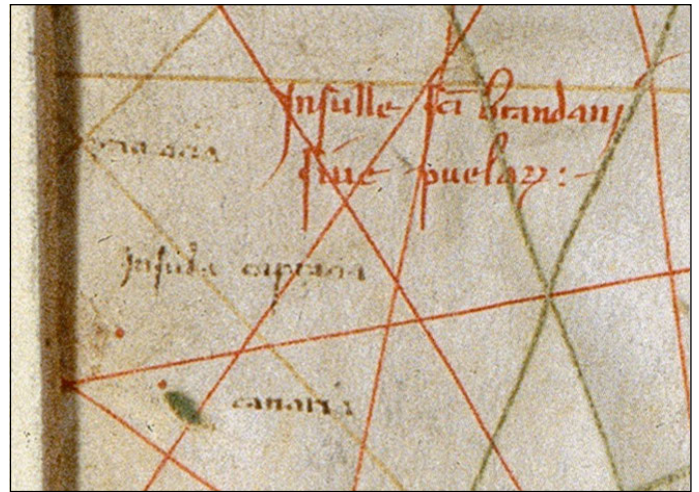 Insulle sc̄i brandani
siue puelaꝝ:-
Insula capraria
canaria